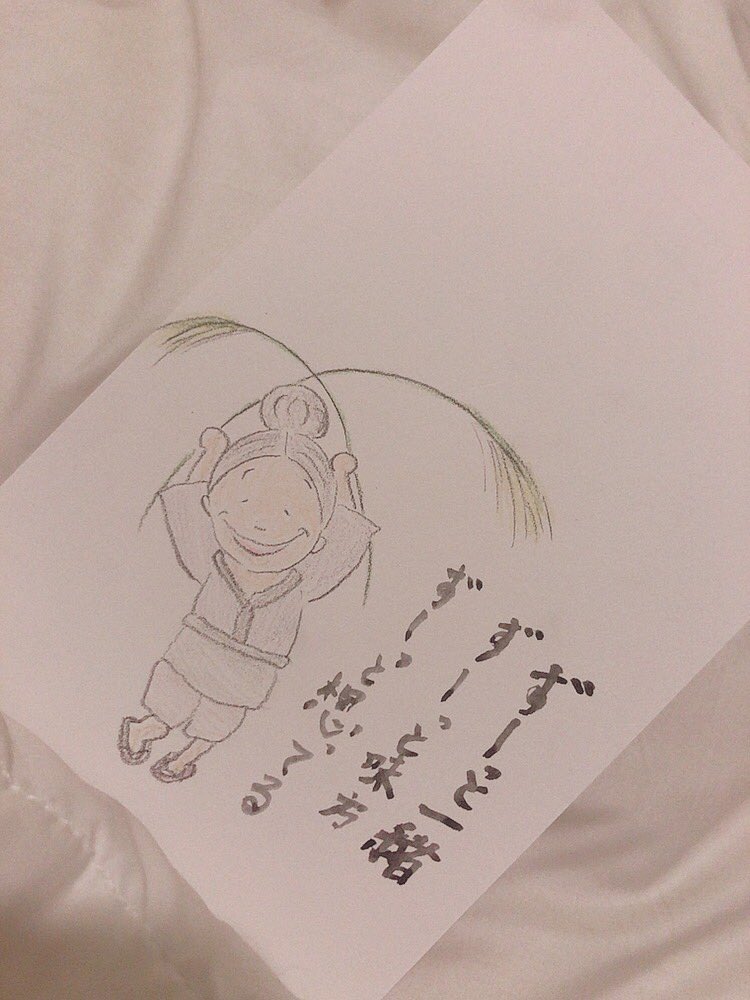 ずーっと一緒
ずーっと味方
ずーっと想ってる